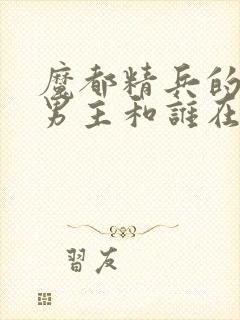 魔都精兵的
男主和誰在
習友